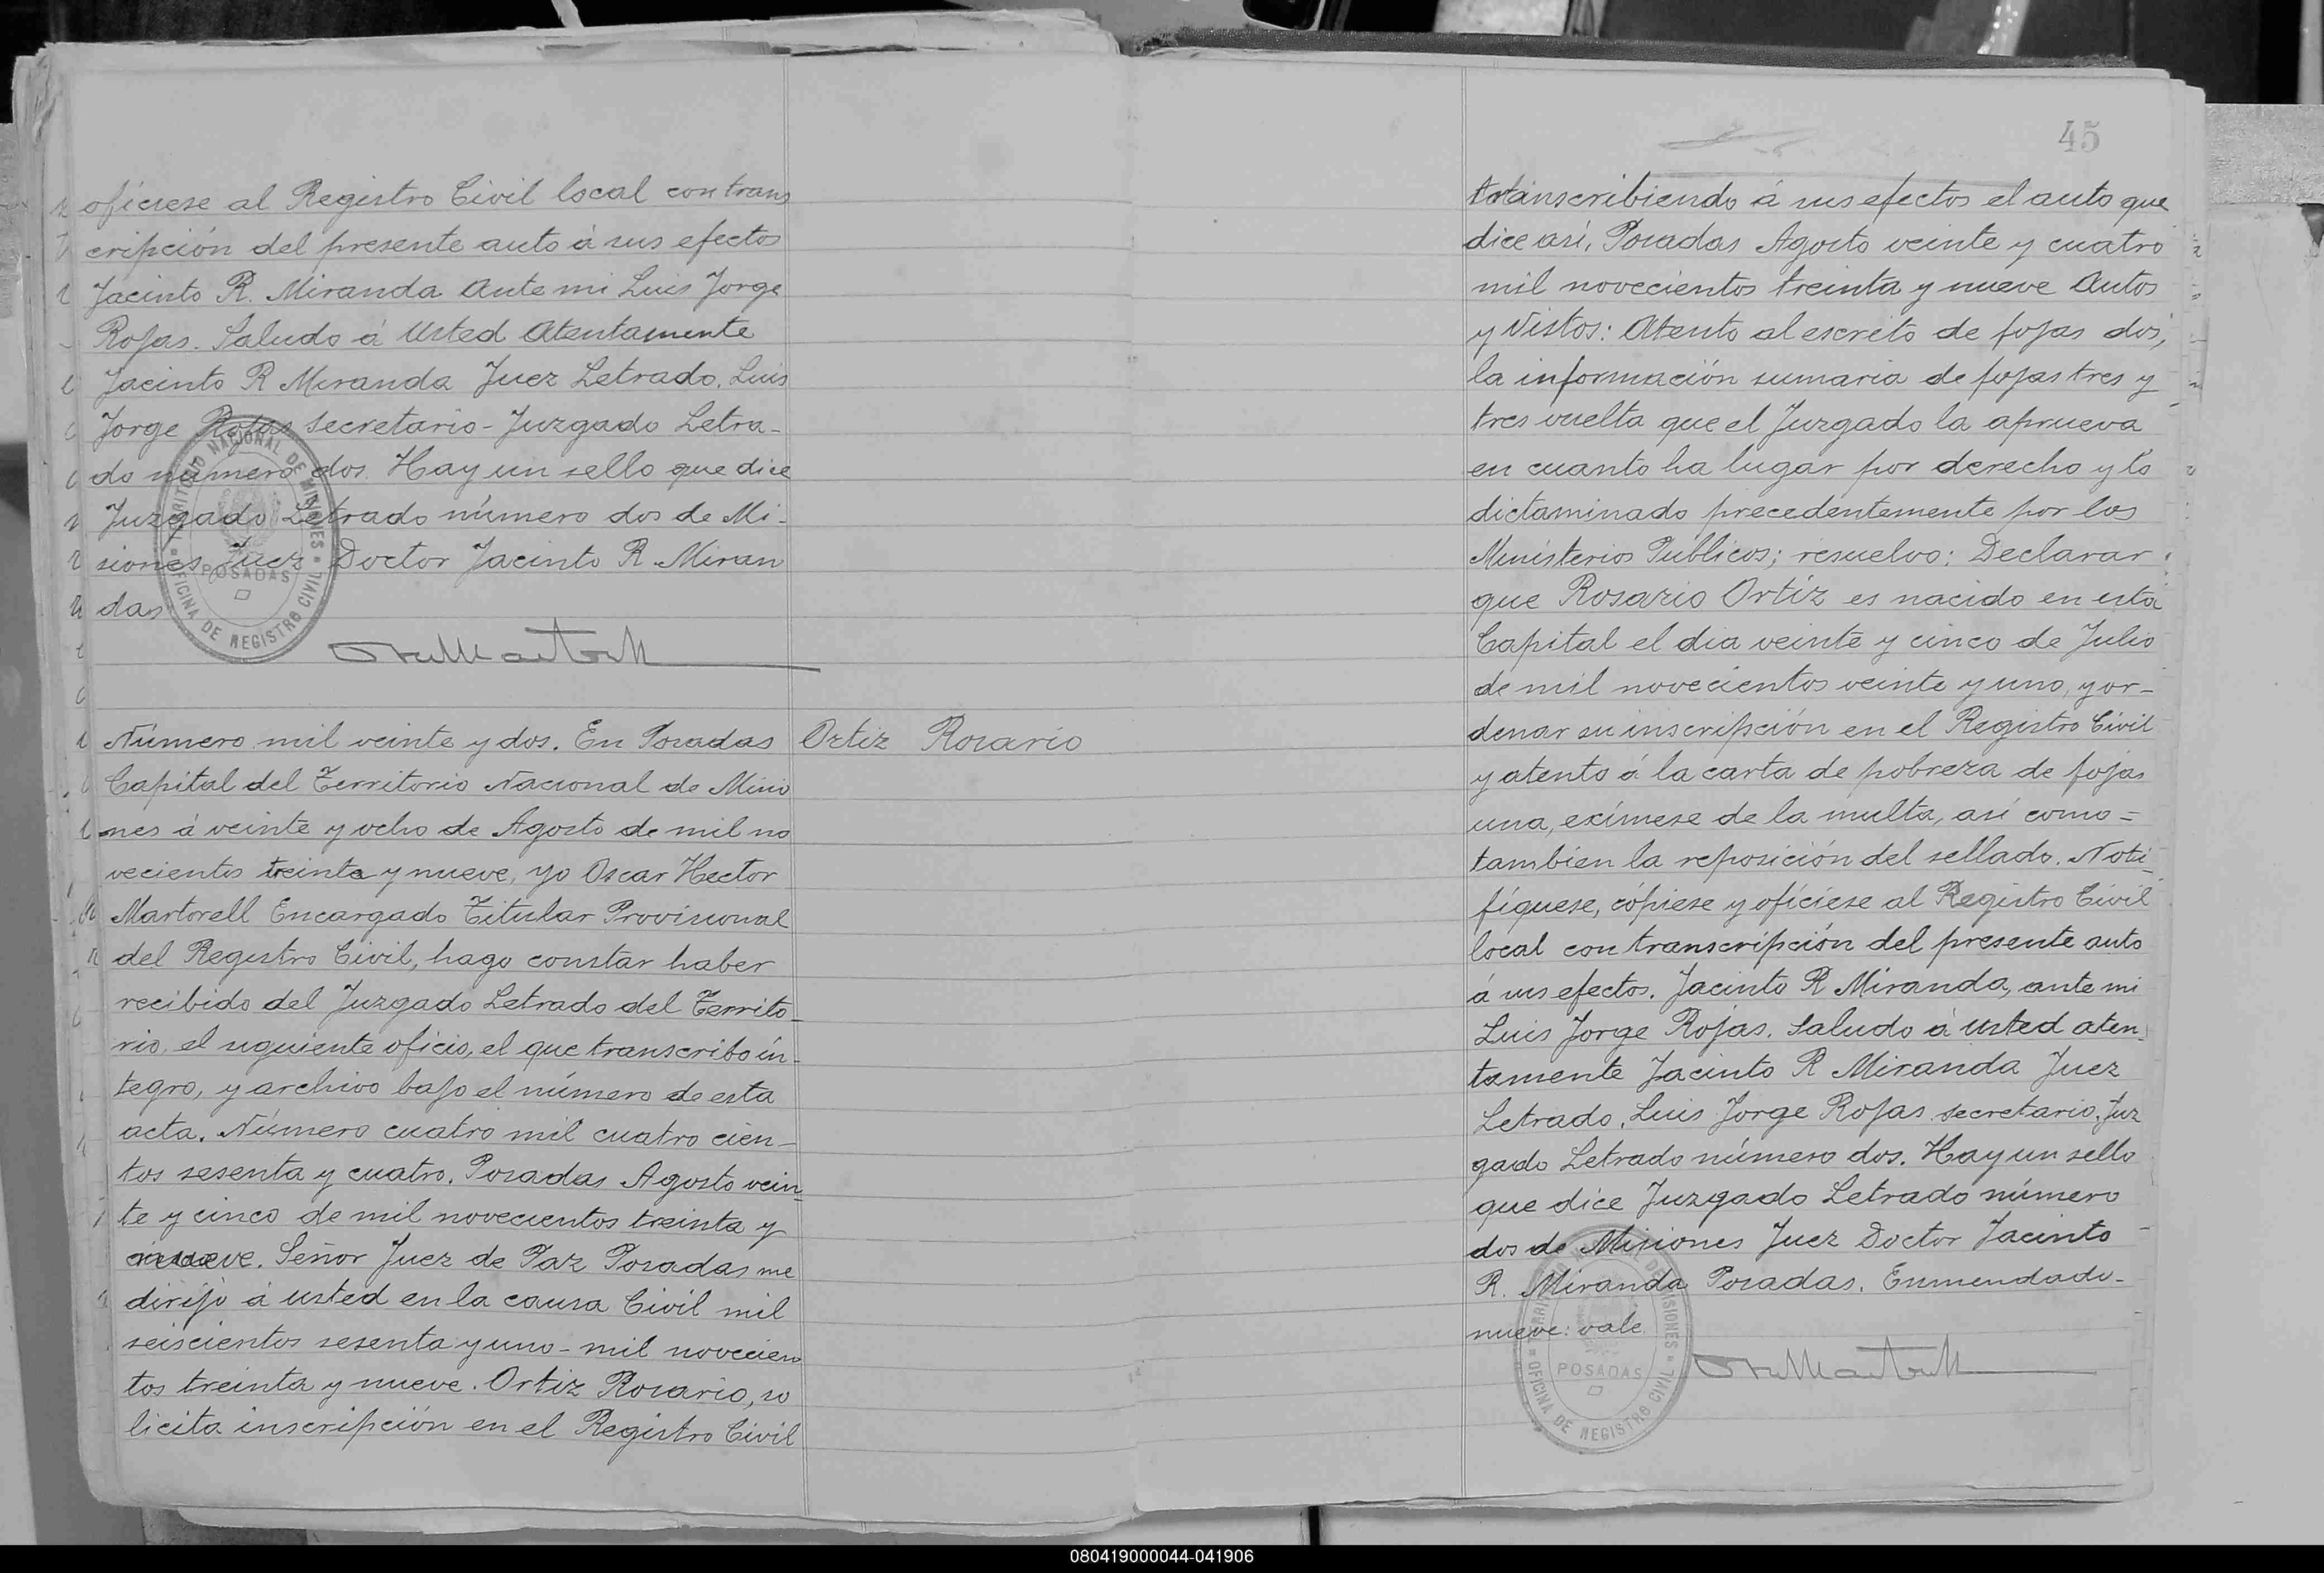 ofíciese al Registro Civil local con trans
cripción del presente auto á sus efectos
Jacinto R. Miranda Ante mi Luis Jorge
Rojas. Saludo á Usted Atentamente
Jacinto R Miranda Juez Letrado. Luis
Jorge Rojas secretario - Juzgado Letra-
do número dos. Hay un sello que dice
Juzgado Letrado número dos de Mi-
siones Juez Doctor Jacinto R. Miran
das
TERRITORIO NACIONAL DE MISIONES
POSADAS
OFICINA DE REGISTRO CIVIL
Número mil veinte y dos. En Posadas
Ortiz Rosario
Capital del Territorio Nacional de Misio
nes á veinte y ocho de Agosto de mil no
vecientos treinta y nueve, yo Oscar Hector
Martorell Encargado Titular Provisional
del Registro Civil, hago constar haber
recibido del Juzgado Letrado del Territo-
rio, el siguiente oficio, el que transcribo ín-
tegro, y archivo bajo el número de esta
acta. Número cuatro mil cuatro cien-
tos sesenta y cuatro. Posadas Agosto vein-
te y cinco de mil novecientos treinta y
nueve. Señor Juez de Paz Posadas me
dirijo á usted en la causa Civil mil
seiscientos sesenta y uno - mil novecien
tos treinta y nueve. Ortiz Rosario, so
licita inscripción en el Registro Civil
45
transcribiendo á sus efectos el auto que
dice así, Posadas Agosto veinte y cuatro
mil novecientos treinta y nueve Autos
y Vistos: Atento al escrito de fojas dos,
la información sumaria de fojas tres y
tres vuelta que el Juzgado la aprueva
en cuanto ha lugar por derecho y lo
dictaminado precedentemente por los
Ministerios Públicos; resuelvo: Declarar
que Rosario Ortíz es nacido en esta
Capital el dia veinte y cinco de Julio
de mil novecientos veinte y uno, y or-
denar su inscripción en el Registro Civil
y atento á la carta de pobreza de fojas
una, exímese de la multa, así como =
tambien la reposición del sellado. Noti-
fíquese, cópiese y ofíciese al Registro Civil
local con transcripción del presente auto
á sus efectos. Jacinto R Miranda, ante mi
Luis Jorge Rojas. Saludo á Usted aten
tamente Jacinto R Miranda Juez
Letrado, Luis Jorge Rojas secretario, Juz
gado Letrado número dos. Hay un sello
que dice Juzgado Letrado número
dos de Misiones Juez Doctor Jacinto
R. Miranda Posadas. Enmendado-
nueve: vale.
TERRITORIO NACIONAL DE MISIONES
POSADAS
OFICINA DE REGISTRO CIVIL
080419000044-041906